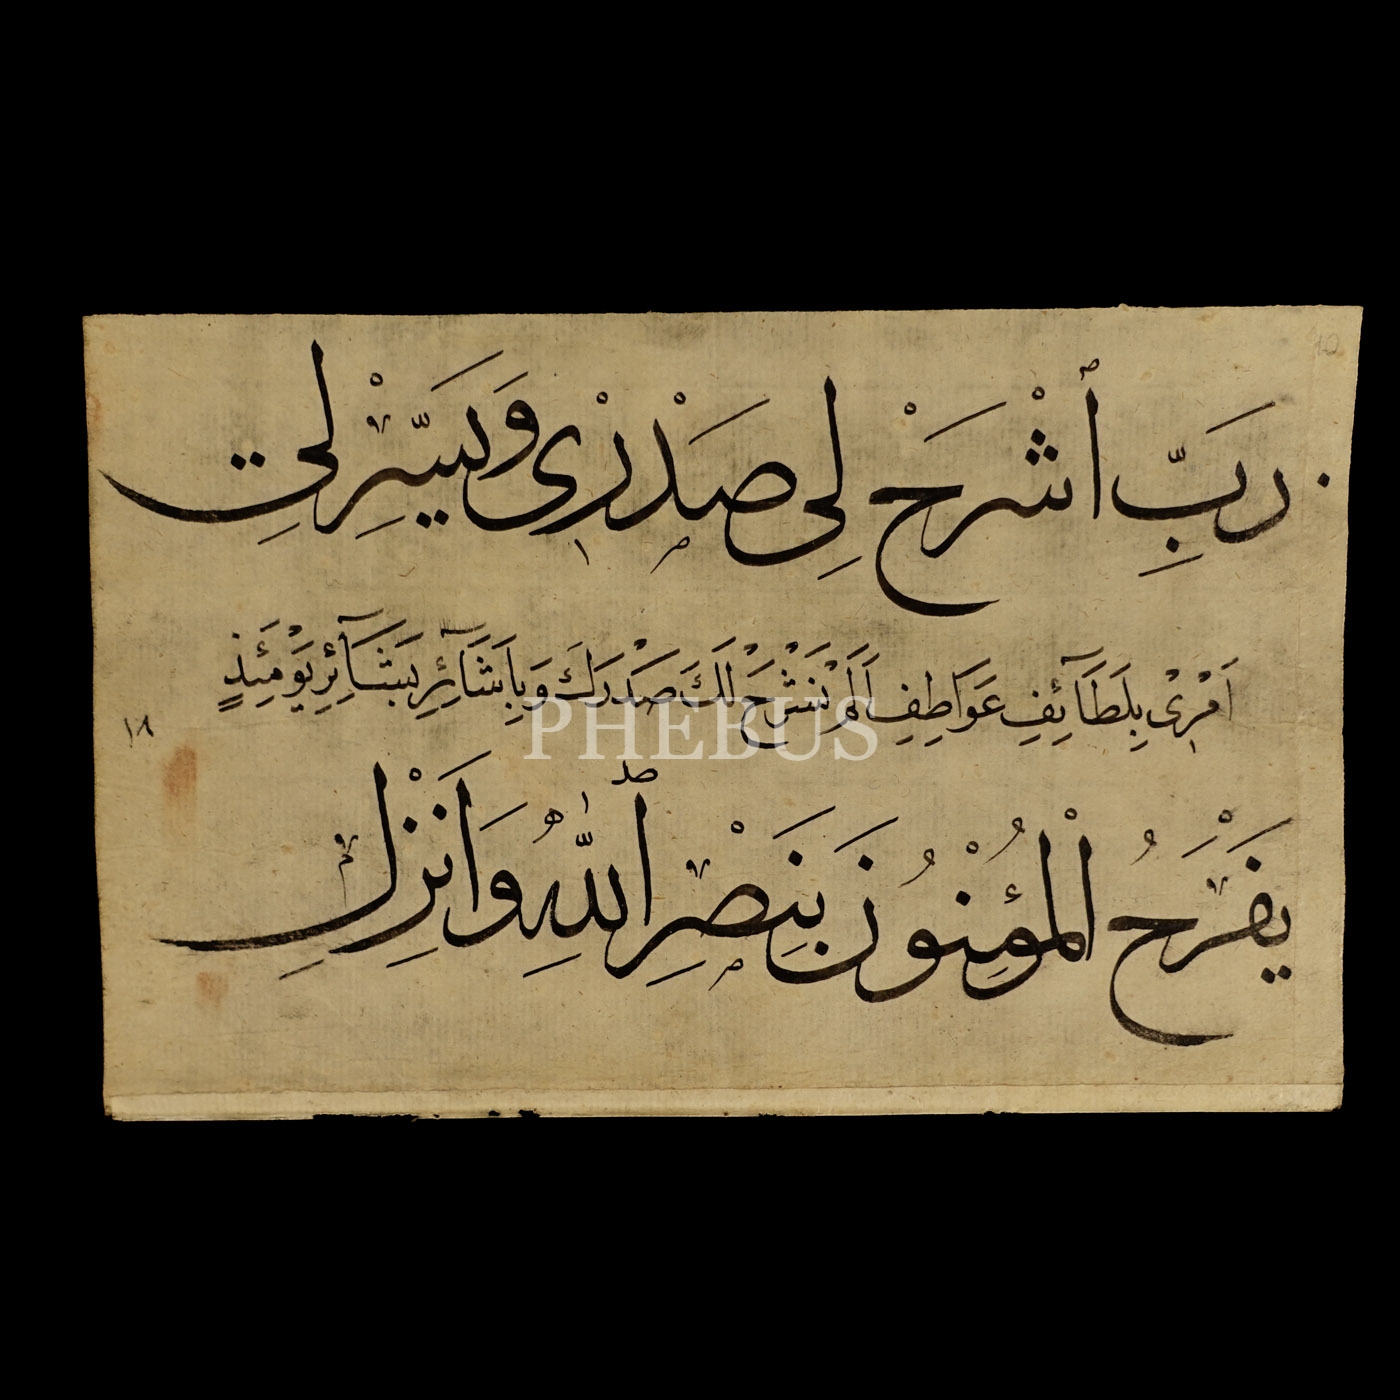 رَبِّ ٱشْرَحْ لِى صَدْرِى وَيَسِّرْ لِى
اَمْرِىْ بِلَطَآئِفِ عَوَاطِفِ اَلَمْ نَشْرَحْ لَكَ صَدْرَكَ وَبِاَشَآئِرِ بَشَآئِرِ يَوْمَئِذٍ
PHEBUS
١٨
يَفْرَحُ الْمُؤْمِنُونَ بِنَصْرِ ٱللّٰهِ وَاَنْزِلِ